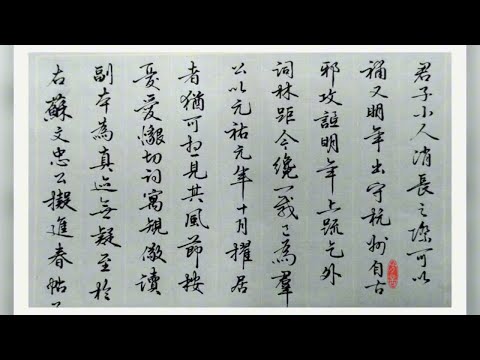 右蘇文忠公擬進春帖
副本為真迹無疑至於
憂愛懇切詞寓規儆讀
者猶可想見其風節按
公以元祐元年十月擢居
詞林距今纔一載已為羣
邪攻詆明年上疏乞外
補又明年出守杭州自古
君子小人消長之際可以